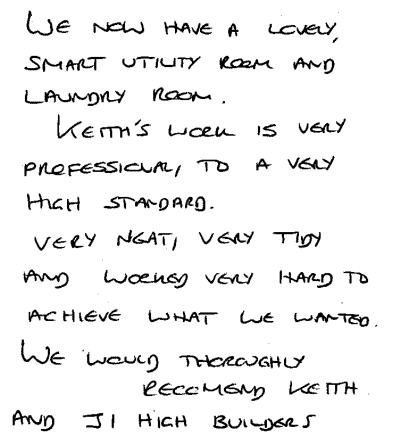 WE NOW HAVE A LOVELY,
SMART UTILITY ROOM AND
LAUNDRY ROOM.
KEITH'S WORK IS VERY
PROFESSIONAL, TO A VERY
HIGH STANDARD.
VERY NEAT, VERY TIDY
AND WORKED VERY HARD TO
ACHIEVE WHAT WE WANTED.
WE WOULD THOROUGHLY
RECOMEND KEITH
AND JI HIGH BUILDERS